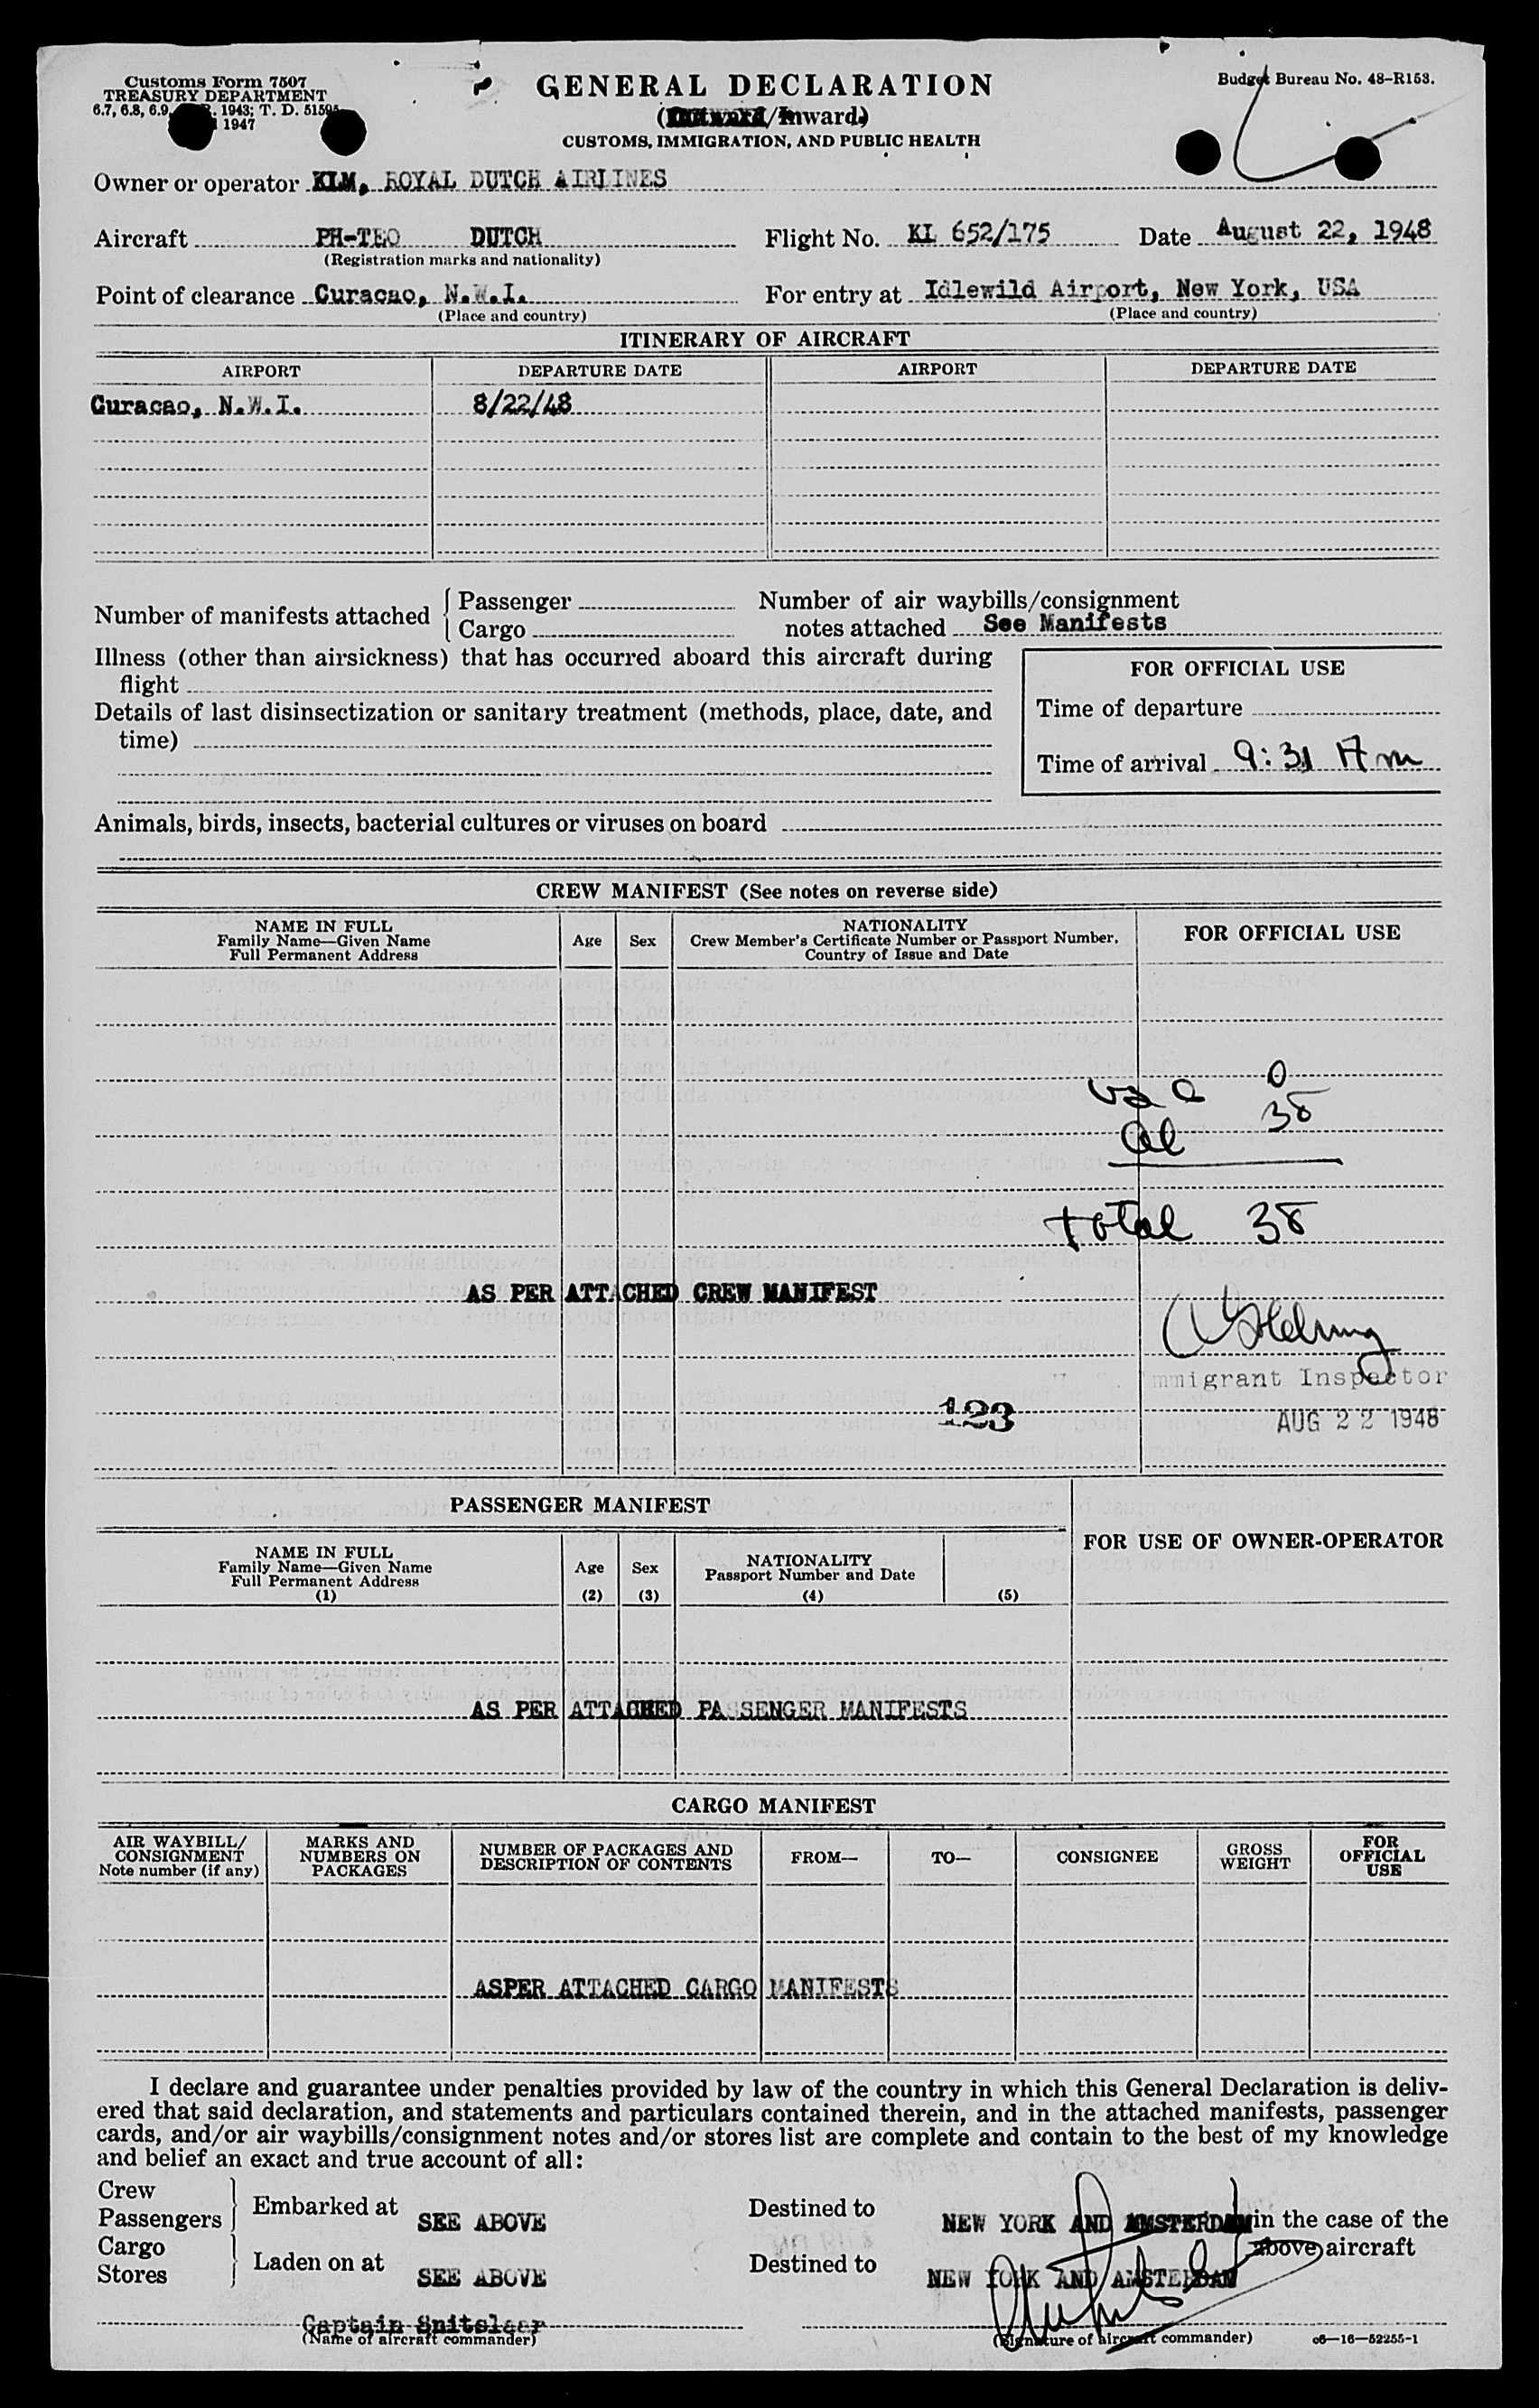 Customs Form 7507
TREASURY DEPARTMENT
6.7, 6.8, 6.9, 1943; T. D. 51595
1947
GENERAL DECLARATION
(Outward/Inward)
CUSTOMS, IMMIGRATION, AND PUBLIC HEALTH
Budget Bureau No. 48-R153.
Owner or operator KLM, ROYAL DUTCH AIRLINES
Aircraft PH-TEO DUTCH Flight No. KL 652/175 Date August 22, 1948
(Registration marks and nationality)
Point of clearance Curacao, N.W.I. For entry at Idlewild Airport, New York, USA
(Place and country) (Place and country)
ITINERARY OF AIRCRAFT
AIRPORT DEPARTURE DATE AIRPORT DEPARTURE DATE
Curacao, N.W.I. 8/22/48
Number of manifests attached { Passenger
Cargo
Number of air waybills/consignment
notes attached See Manifests
Illness (other than airsickness) that has occurred aboard this aircraft during
flight
Details of last disinsectization or sanitary treatment (methods, place, date, and
time)
FOR OFFICIAL USE
Time of departure
Time of arrival 9:31 Am
Animals, birds, insects, bacterial cultures or viruses on board
CREW MANIFEST (See notes on reverse side)
NAME IN FULL
Family Name—Given Name
Full Permanent Address
Age
Sex
NATIONALITY
Crew Member's Certificate Number or Passport Number,
Country of Issue and Date
FOR OFFICIAL USE
0
al 38
total 38
AS PER ATTACHED CREW MANIFEST
Immigrant Inspector
123
AUG 22 1948
PASSENGER MANIFEST
NAME IN FULL
Family Name—Given Name
Full Permanent Address
(1)
Age
(2)
Sex
(3)
NATIONALITY
Passport Number and Date
(4)
(5)
FOR USE OF OWNER-OPERATOR
AS PER ATTACHED PASSENGER MANIFESTS
CARGO MANIFEST
AIR WAYBILL/
CONSIGNMENT
Note number (if any)
MARKS AND
NUMBERS ON
PACKAGES
NUMBER OF PACKAGES AND
DESCRIPTION OF CONTENTS
FROM—
TO—
CONSIGNEE
GROSS
WEIGHT
FOR
OFFICIAL
USE
ASPER ATTACHED CARGO MANIFESTS
I declare and guarantee under penalties provided by law of the country in which this General Declaration is deliv-
ered that said declaration, and statements and particulars contained therein, and in the attached manifests, passenger
cards, and/or air waybills/consignment notes and/or stores list are complete and contain to the best of my knowledge
and belief an exact and true account of all:
Crew
Passengers } Embarked at SEE ABOVE Destined to NEW YORK AND AMSTERDAM in the case of the
above aircraft
Cargo
Stores } Laden on at SEE ABOVE Destined to NEW YORK AND AMSTERDAM
Captain Snitslaar
(Name of aircraft commander) (Signature of aircraft commander) c6—16—52255-1